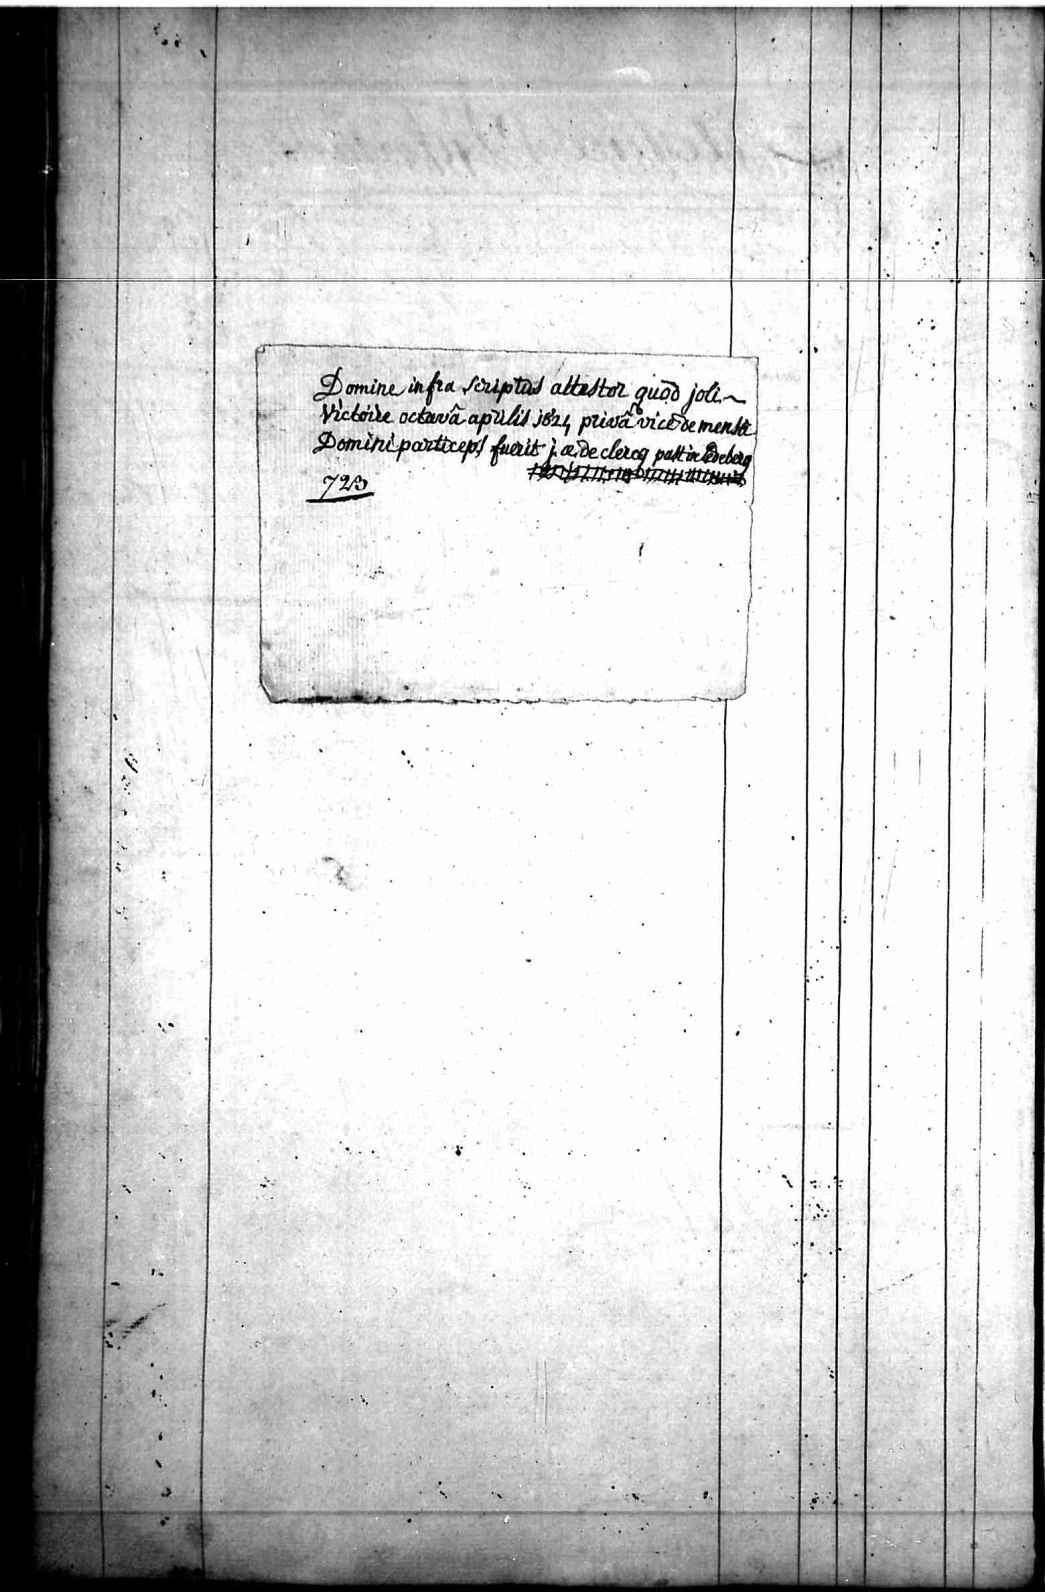 Domine infra scriptus attestor quod joli
Victoire octavâ aprilis 1824 privâ vice de mensâ
Domini particeps fuerit j. æ. de clercq past in Ledeberg
723